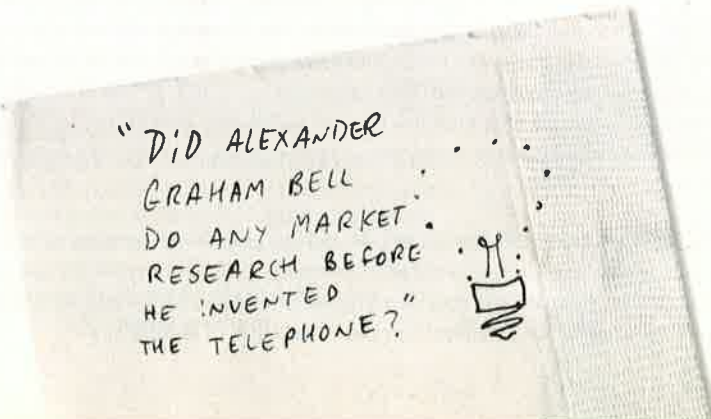 "DiD ALEXANDER
GRAHAM BELL
DO ANY MARKET
RESEARCH BEFORE
HE iNVENTED
THE TELEPHONE?"